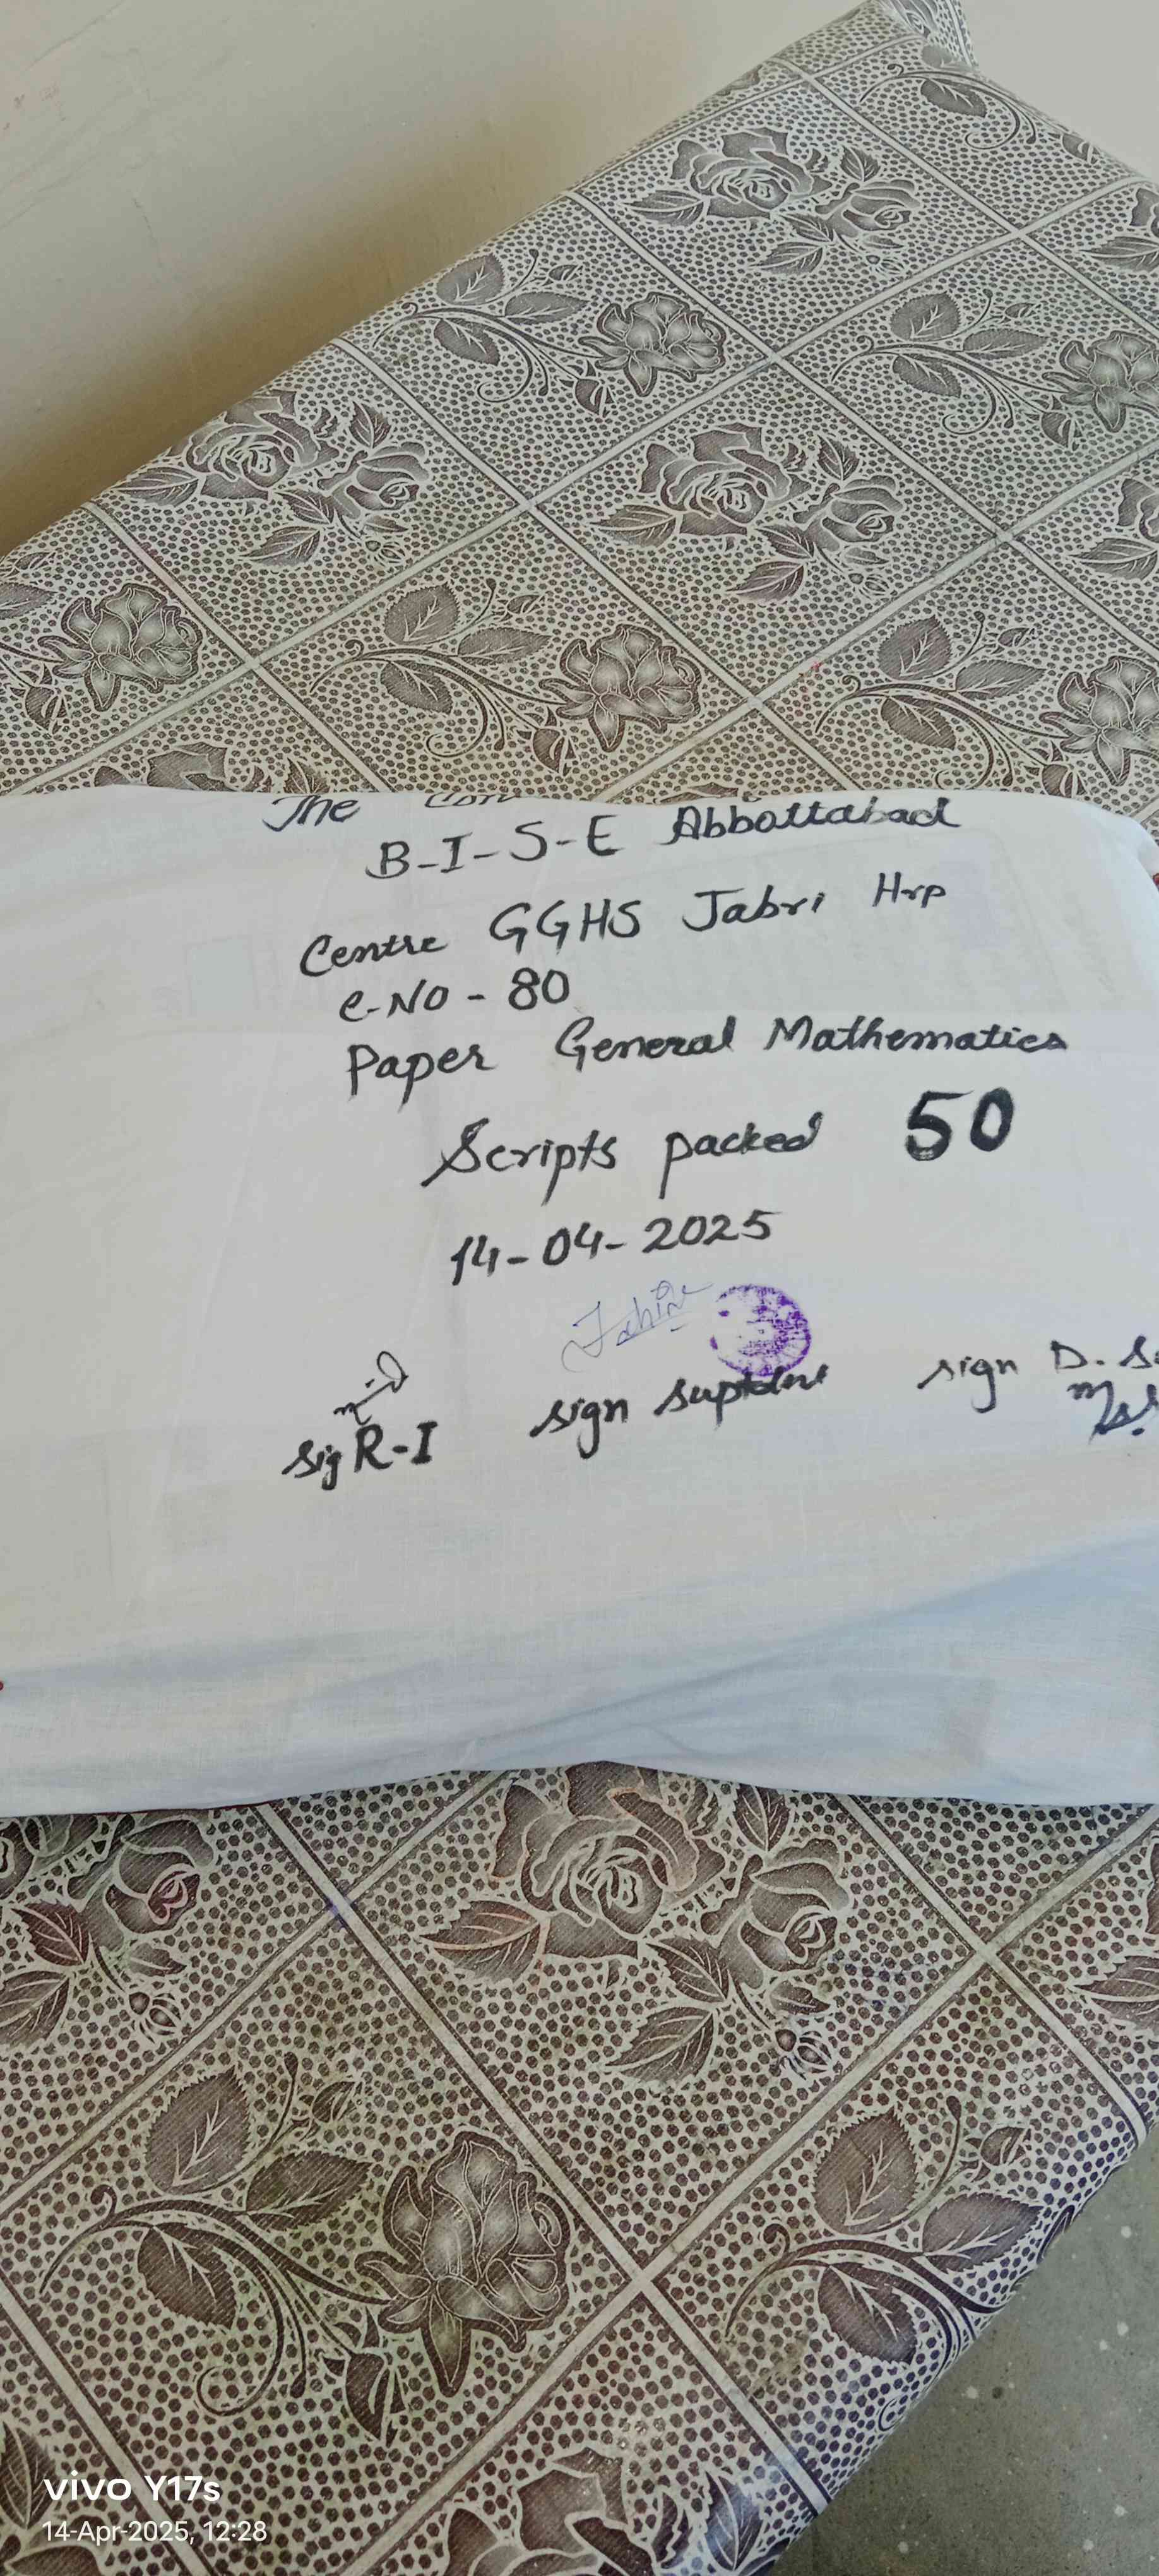 The Con
B-I-S-E Abbottabad
Centre GGHS Jabri Hrp
C-NO-80
Paper General Mathematics
Scripts packed 50
14-04-2025
sig R-I sign suptdnt sign D. S
vivo Y17s
14-Apr-2025, 12:28